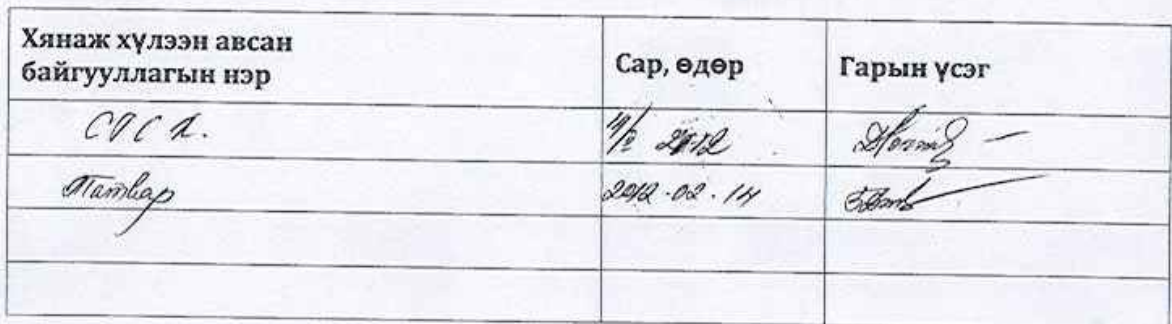 Хянаж хүлээн авсан
байгууллагын нэр
Сар, өдөр
Гарын үсэг
Татвар
2012.02.14